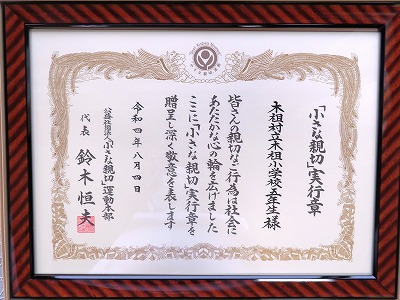 「小さな親切」実行章
木祖村立木祖小学校五年生様
皆さんの親切なご行為は社会に
あたたかな心の輪を広げました
ここに「小さな親切」実行章を
贈呈し深く敬意を表します
令和四年八月四日
公益社団法人「小さな親切」運動本部
代表 鈴木恒夫